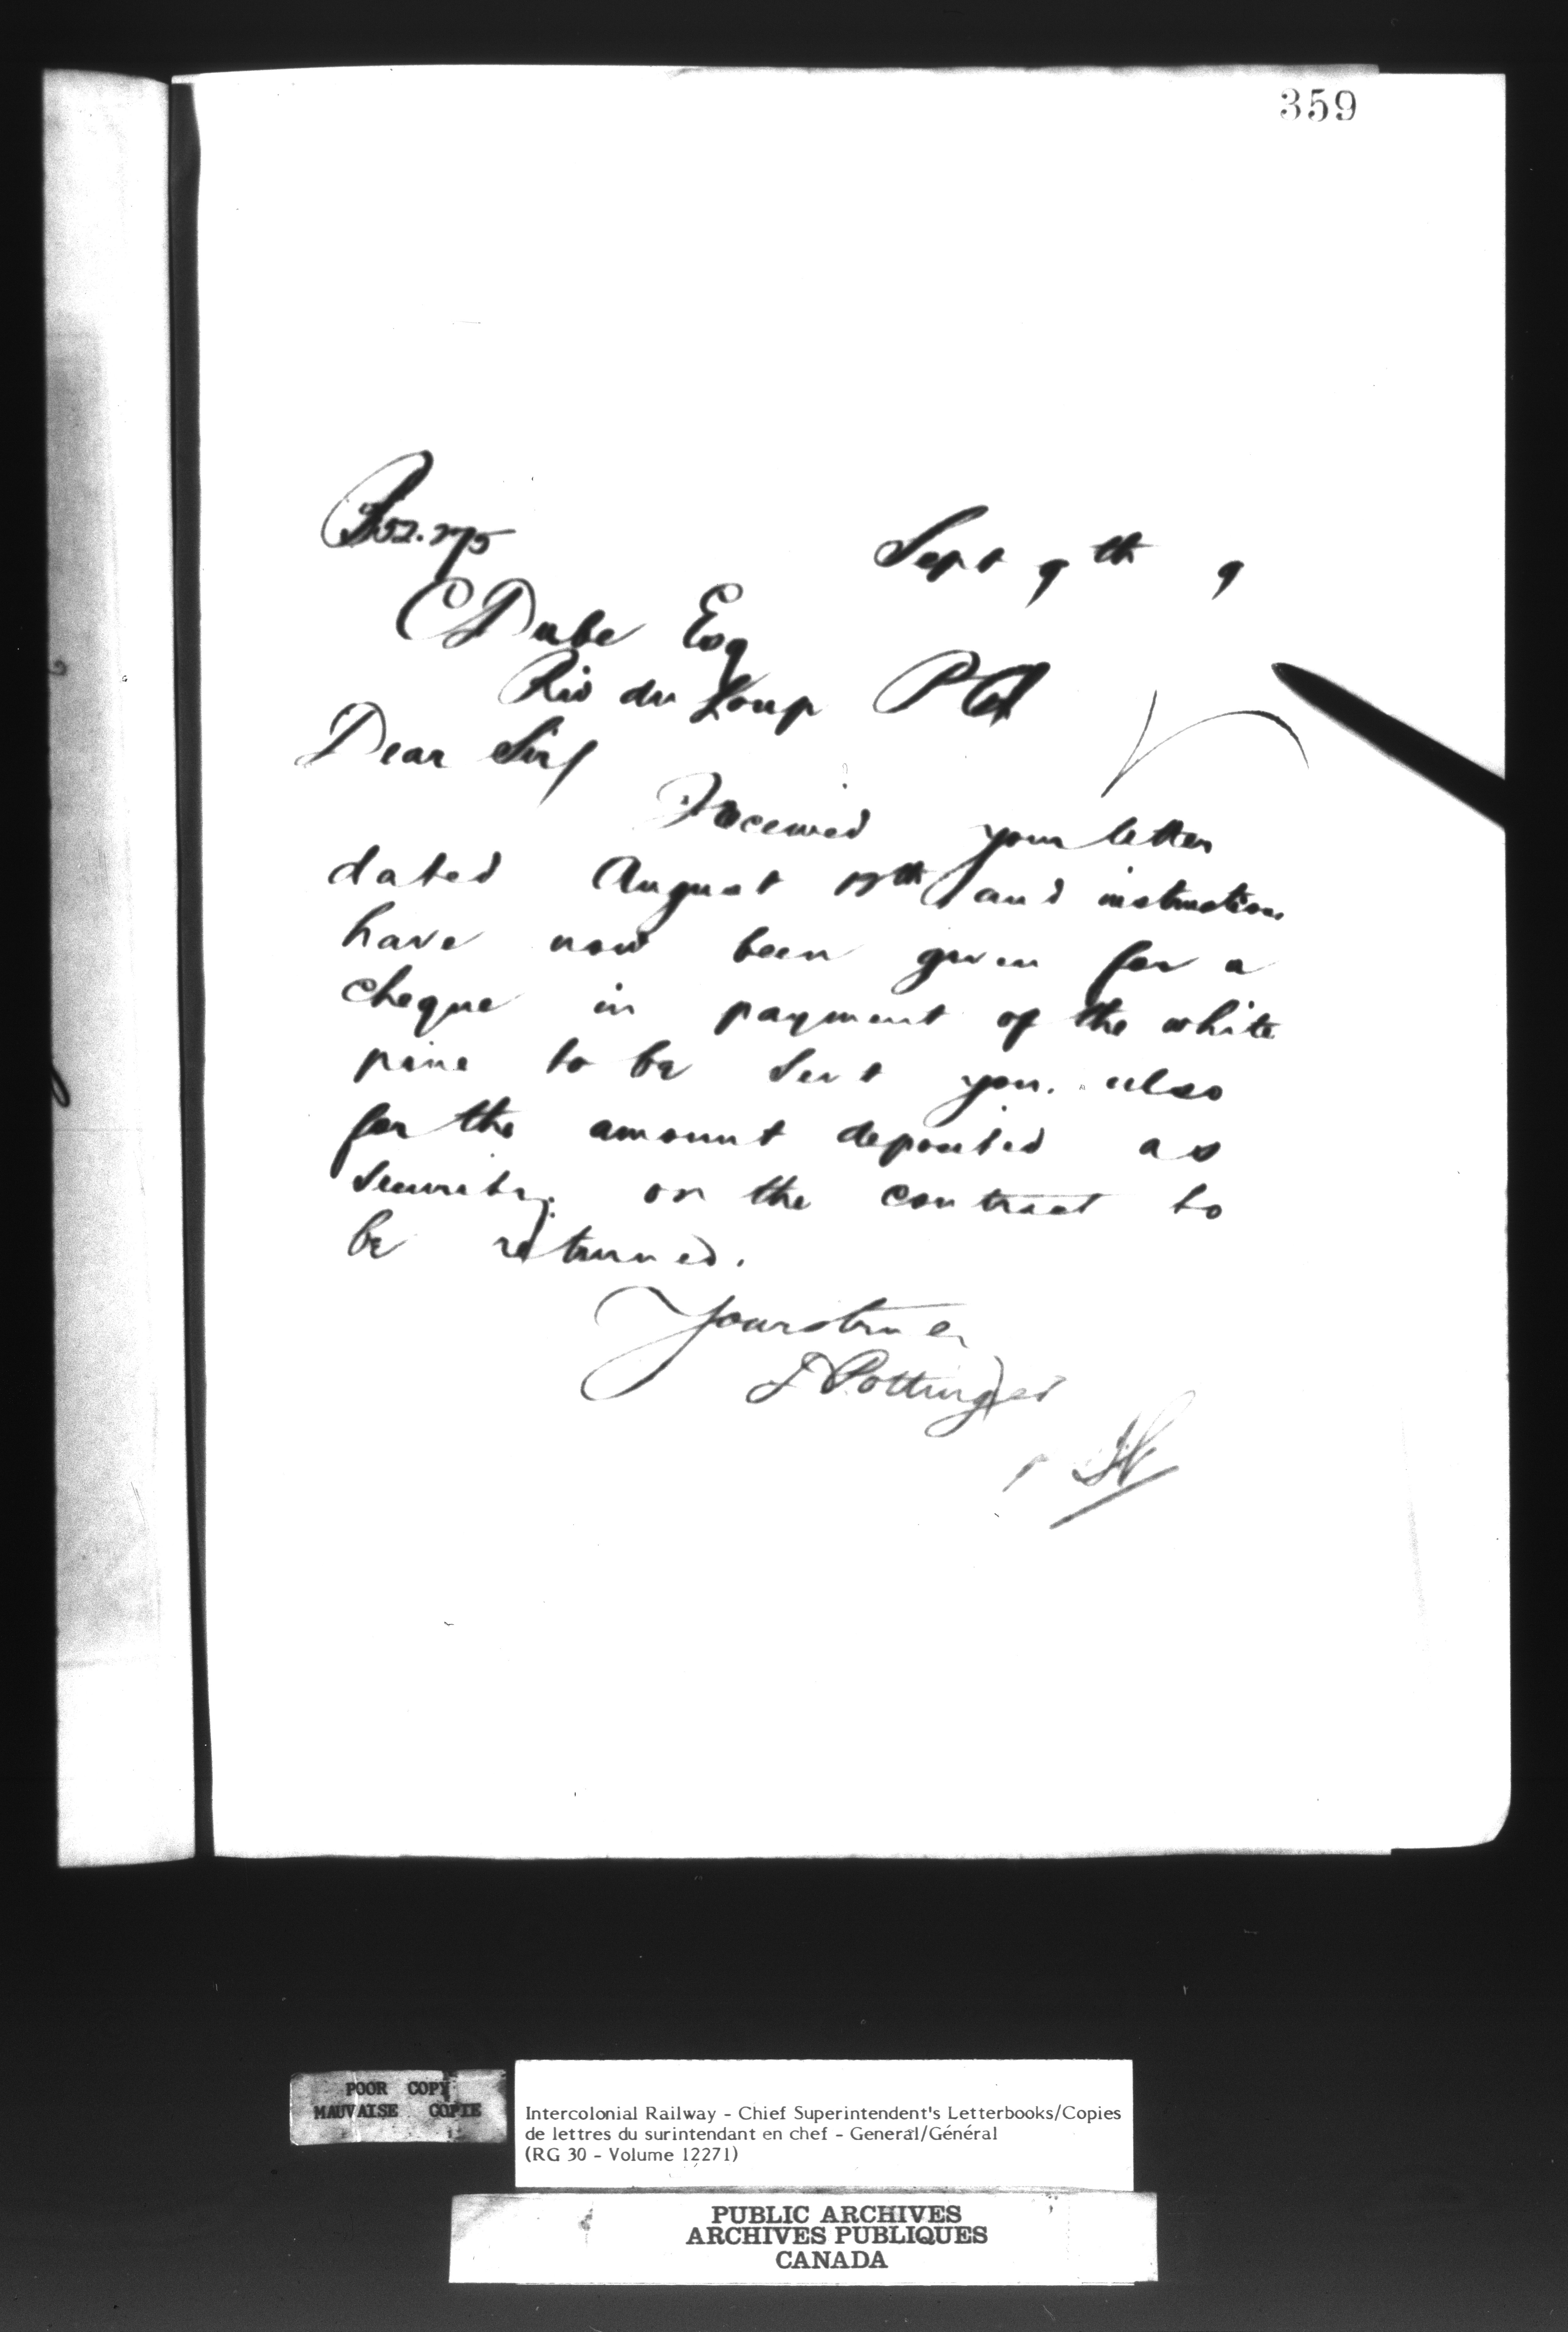 359
Sept 9th 9
C Dube Esq
Riv du Loup PQ
Dear Sir/
I received your letter
dated August and instructions
have now been given for a
cheque in payment of the white
pine to be sent you. also
for the amount deposited as
security on the contract to
be returned.
Yours truly
D Pottinger
POOR COPY
MAUVAISE COPIE
Intercolonial Railway - Chief Superintendent's Letterbooks/Copies
de lettres du surintendant en chef - General/Général
(RG 30 - Volume 12271)
PUBLIC ARCHIVES
ARCHIVES PUBLIQUES
CANADA